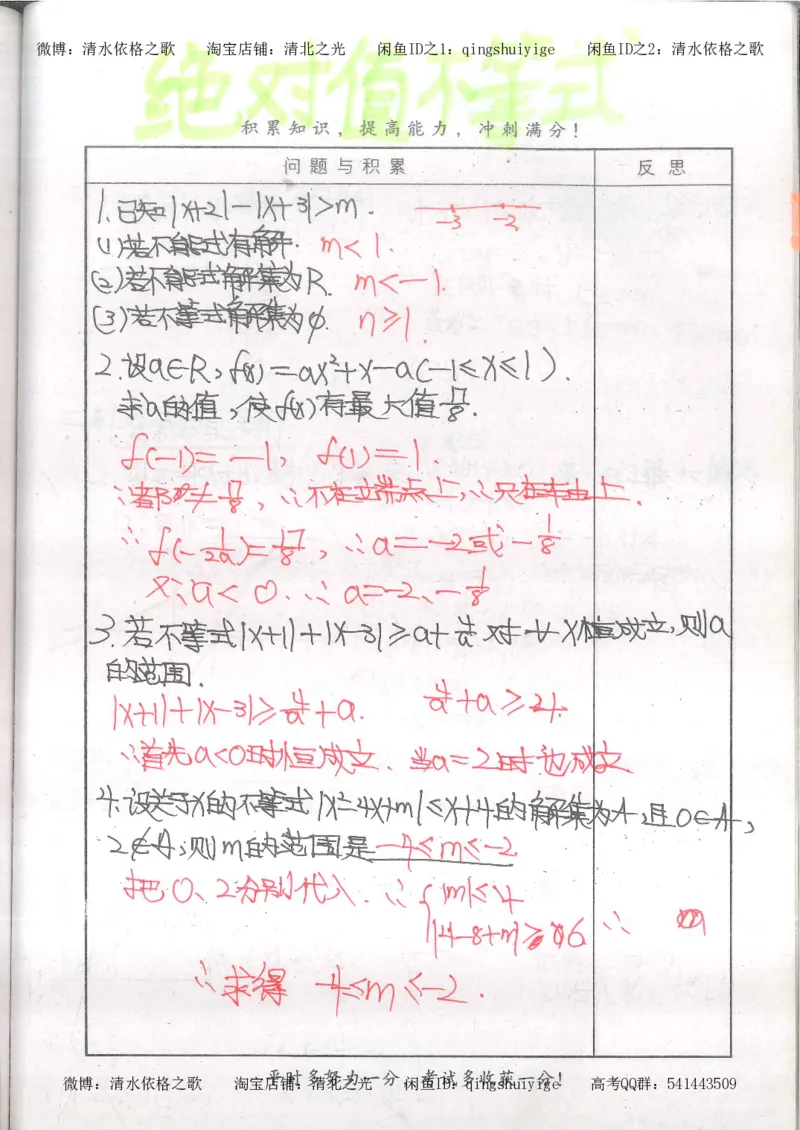 微博：清水依格之歌 淘宝店铺：清北之光 闲鱼ID之1：qingshuiyige 闲鱼ID之2：清水依格之歌
绝对值不等式
积累知识，提高能力，冲刺满分！
问题与积累 反思
1.已知|x+2|-|x+3|>m. -3 -2
(1)若不等式有解. m<1.
(2)若不等式解集为R. m<-1.
(3)若不等式解集为φ. n≥1.
2.设a∈R,f(x)=ax²+x-a(-1≤x≤1).
求a的值,使f(x)有最大值17/8.
∵f(-1)=-1, f(1)=1
∴都≠17/8, ∴不在端点上,∴只在
∴f(-1/2a)=17/8, ∴a=-2或-1/8
又∵a<0. ∴a=-2、-1/8
3.若不等式|x+1|+|x-3|≥a+4/a对一切x恒成立,则a
的范围.
|x+1|+|x-3|≥4/a+a. 4/a+a≥
∴首先a<0时恒成立. 当a=2时也成立
4.设关于x的不等式|x²-4x+m|≤x+4的解集为A,且0∈A,
2∉A,则m的范围是-4≤m≤-2
把0、2分别代入. ∴{|m|≤4
|4-8+m|≥6 ∴
∴求得 -4≤m≤-2.
平时多努力一分，考试多收获一分！
微博：清水依格之歌 淘宝店铺：清北之光 闲鱼ID：qingshuiyige 高考QQ群：541443509